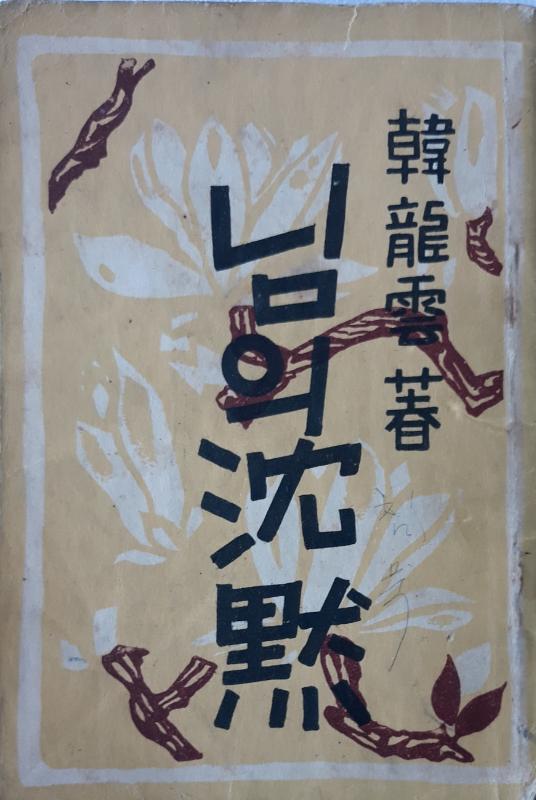 韓龍雲著
님의沈黙